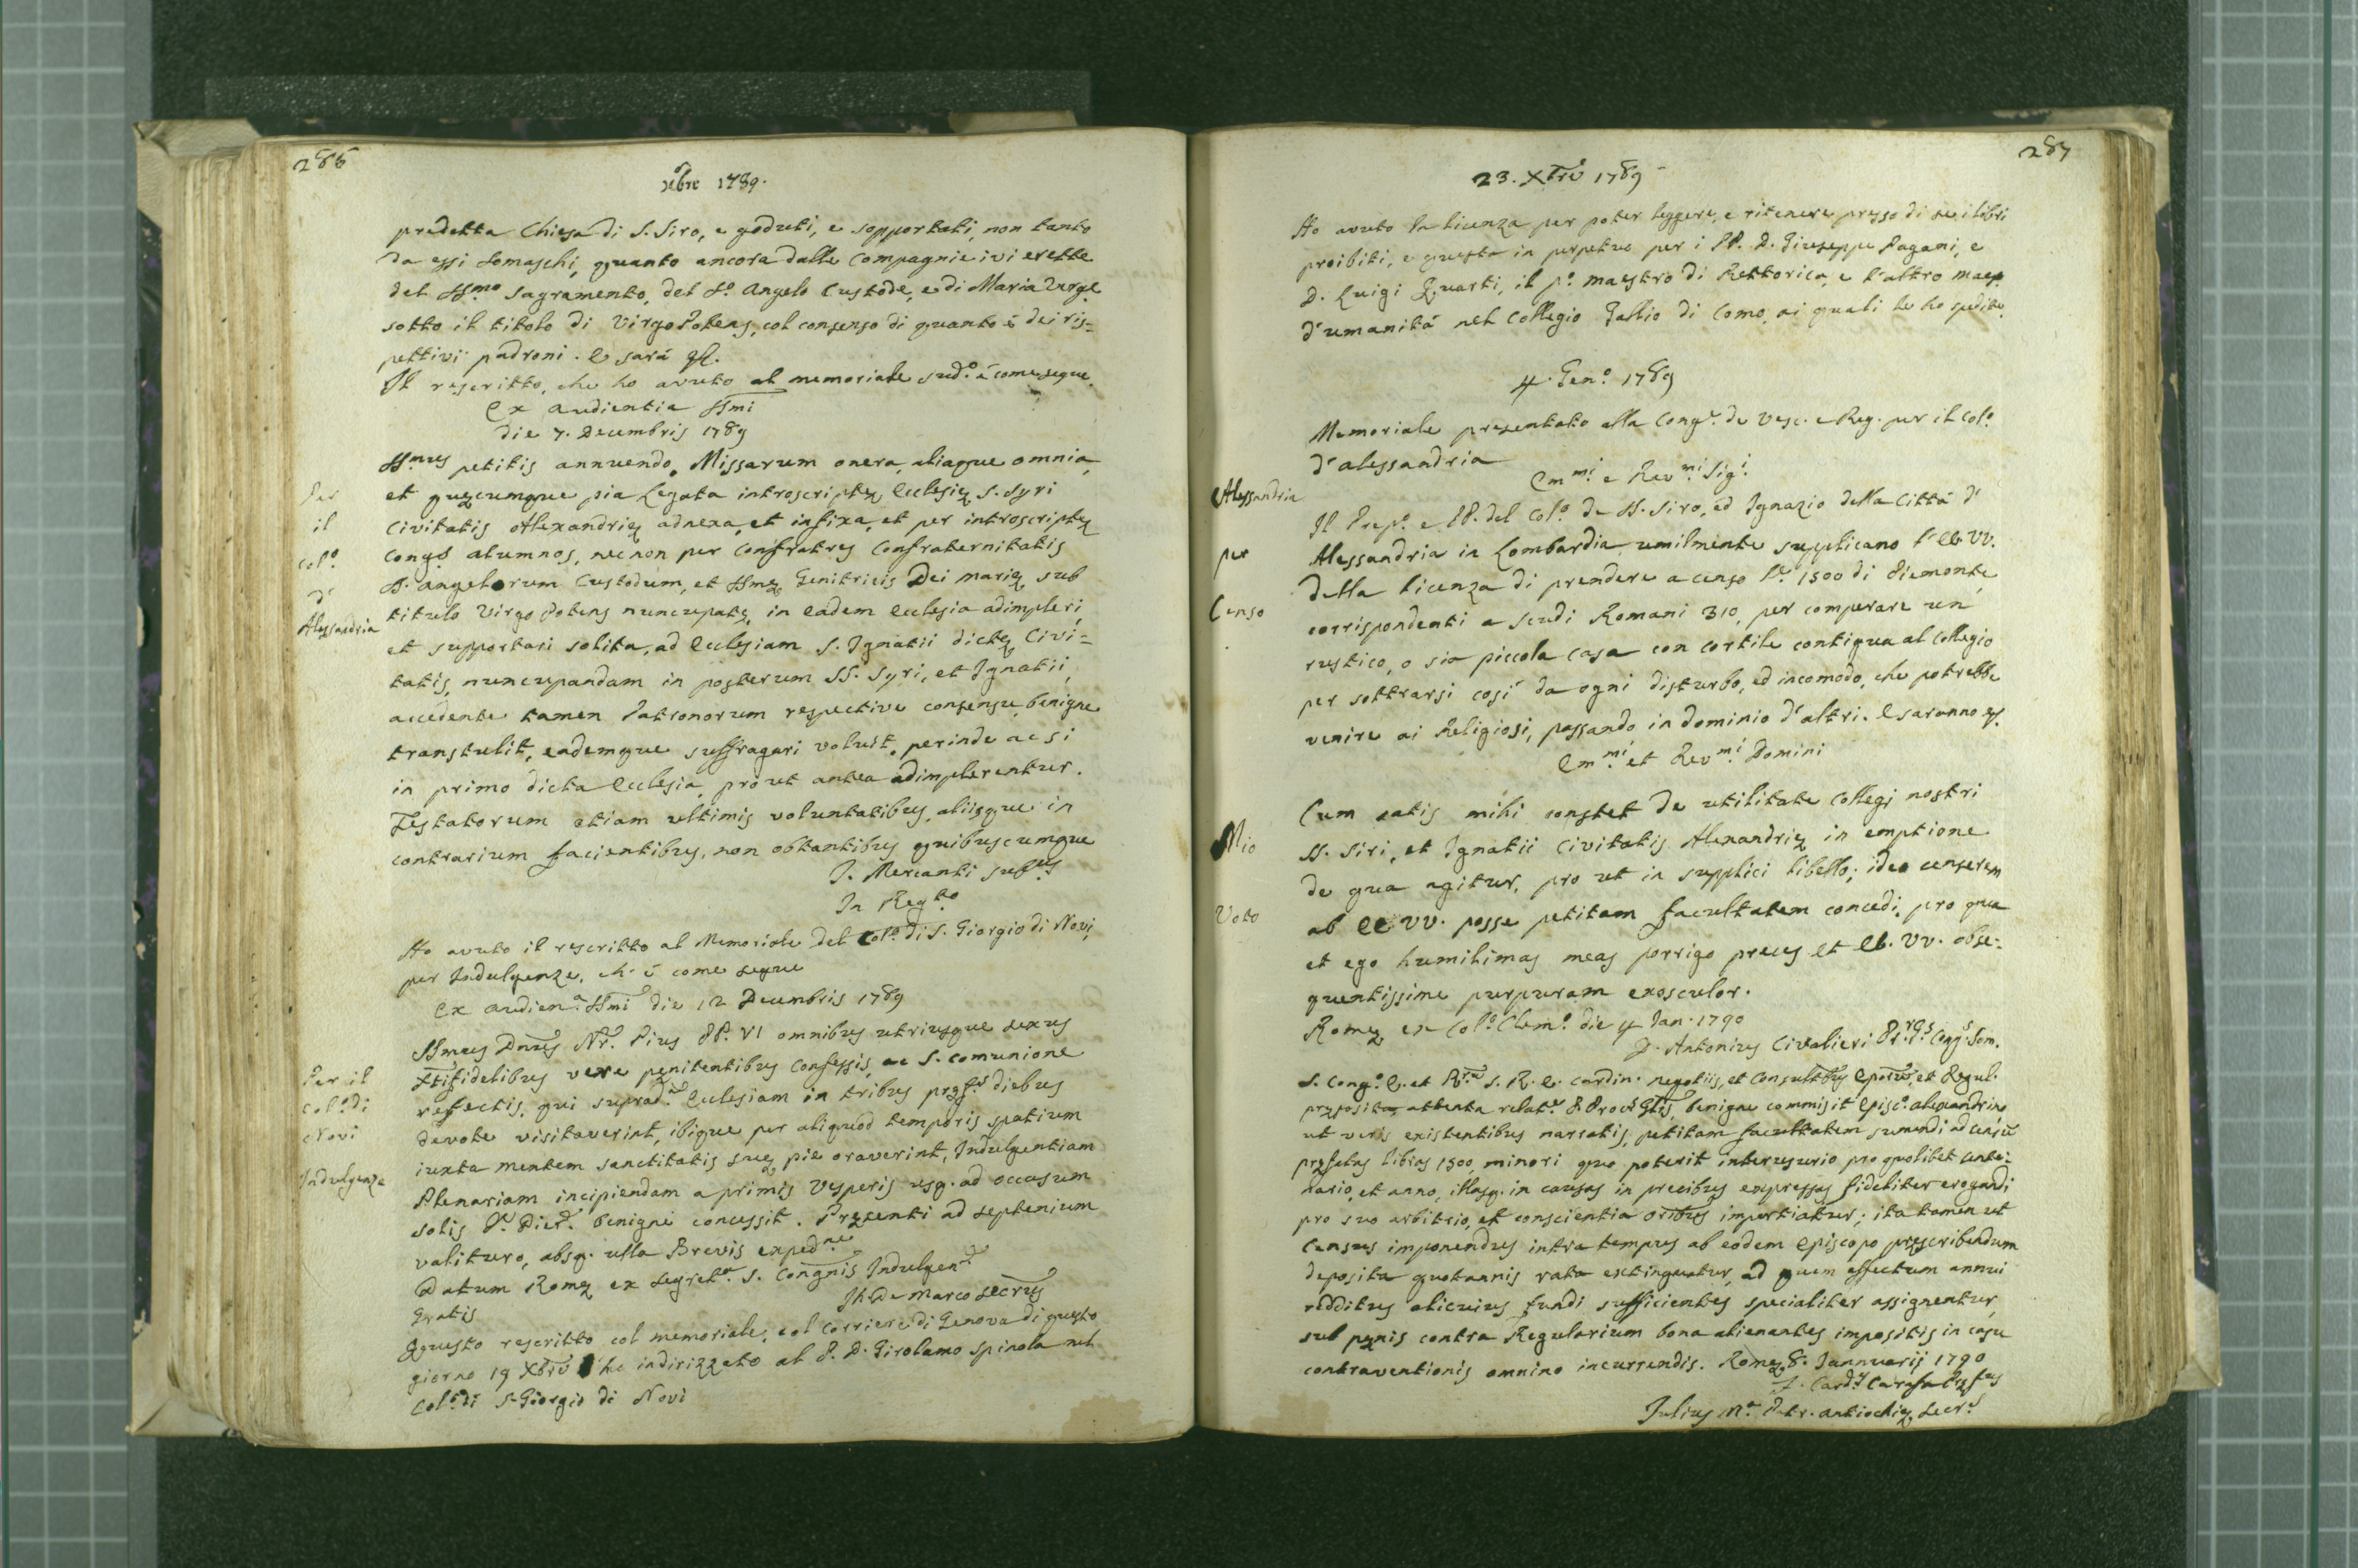 286
xbre 1789.
predetta Chiesa di S. Siro, e goduti, e sopportati, non tanto
da essi Somaschi, quanto ancora dalle Compagnie ivi erette
del SSmo Sagramento, del Sº. Angelo Custode, e di Maria Verge
sotto il titolo di Virgo Potens, col consenso di quanto è dei ris=
pettivi padroni. E sarà
Il rescritto, che ho avuto al memoriale sudº. è come segue
Ex Audientia SSmi
die 7. Decembris 1789
SSmus petitis annuendo, Missarum onera, aliaque omnia,
et quęcumque pia Legata introscriptę Ecclesię S. Syri
Civitatis Alexandrię adnexa, et infixa, et per introscriptę
Congs alumnos, nec non per Confratres Confraternitatis
S. Angelorum Custodum, et SSmę Genitricis Dei Marię, sub
titulo Virgo Potens nuncupatę, in eadem Ecclesia adimpleri,
et supportari solita, ad Ecclesiam S. Ignatii dictę Civi=
tatis, nuncupandam in posterum SS. Syri, et Ignatii,
accedente tamen Patronorum respective consensu, benigne
transtulit, eademque suffragari voluit, perinde ac si
in primo dicta Ecclesia, prout antea adimplerentur.
Testatorum etiam ultimis voluntatibus, aliisque in
contrarium facientibus, non obstantibus quibuscumque
J. Mercanti
In Regto
Per
il
Colº.
d'
Alessandria
Ho avuto il rescritto al Memoriale del Colº. di S. Giorgio di Novi,
per Indulgenze, ch. è come segue
Ex Audienª. SSmi die 12 Decembris 1789
SSmus Dnus Nr. Pius PP. VI omnibus utriusque sexus
Xtifidelibus vere pęnitentibus Confessis, ac S. Comunione
refectis, qui suprad. Ecclesiam in tribus pręfs diebus
devote visitaverint, ibique per aliquod temporis spatium
iuxta mentem sanctitatis suę pie oraverint, Indulgentiam
Plenariam incipiendam a primis Vesperis usq. ad occasum
solis dier. benigne concessit. Pręsenti ad septenium
valituro, absq. ulla Brevis expedne
Datum Romę ex Segretª. S. Congnis Indulgen
Gratis
De Marco Secrius
Per il
Colº. di
Novi
Indulgenze
Questo rescritto col memoriale, col Corriere di Genova di questo
giorno 19 Xbre l'ho indirizzato al P. D. Girolamo Spinola nel
Colº. di S. Giorgio di Novi
287
23. Xbre 1789
Ho avuto la licenza per poter leggere, e ritenere presso di se i libri
proibiti, e questa in perpetuo per i PP. D. Giuseppe Pagani, e
D. Luigi Quarti, il pº. maestro di Rettorica, e l'altro maes.
d'umanità nel Collegio Gallio di Como, ai quali le ho spedite.
4. Genº. 1789
Memoriale presentato alla Congne. de Vesc. e Reg. per il Colº.
d'Alessandria
Emmi. e Revmi. Sigi.
Il Prepº. e PP. del Colº. de SS. Siro, ed Ignazio della Città d'
Alessandria in Lombardia umilmente supplicano l'EE. VV.
della licenza di prendere a censo Lº. 1500 di Piemonte,
corrispondenti a Scudi Romani 310, per comperare un
rustico, o sia piccola casa con cortile contigua al Collegio
per sottrarsi così da ogni disturbo, ed incomodo, che potrebbe
venire ai Religiosi, passando in dominio d'altri. E saranno
Emmi. et Revmi. Domini
Alessandria
per
Censo
Cum satis mihi constet de utilitate Collegj nostri
SS. Siri, et Ignatii Civitatis Alexandrię in emptione
de qua agitur, pro ut in supplici libello; ideo censerem
ab EE VV. posse petitam facultatem concedi, pro qua
et ego humilimas meas porrigo preces et EE. VV. obse=
quentissime purpuram exosculor.
Romę ex Colº. Clemº. die 4 Jan. 1790
D. Antonius Civalieri Congs. Som.
Mio
Voto
S. Congº. E. et S. R. E. Cardin. negotiis, et Consultbus Eporum, et Regul.
pręposita attenta relatne P. Procis Glis, benigne commisit Episcº. Alexandrino
ut veris existentibus narratis, petitam facultatem sumendi ad censũ
pręfatas libras 1500, minori quo poterit interusurio pro quolibet cente=
nario, et anno, illasq. in causas in precibus expressas fideliter erogandi
pro suo arbitrio, et conscientia oribus impertiatur; ita tamen ut
Census imponendus intra tempus ab eodem Episcopo pręscribendum
deposita quotannis rata extinguatur, ad quem effectum annui
redditus alicuius fundi sufficientes specialiter assignentur,
sub pęnis contra Regularium bona alienantes impositis in casu
contraventionis omnino incurrendis. Romę 8. Jannuarij 1790
F. Cardis Carafa Pręfus
Julius Mª. Patr. Antiochię, Secrs